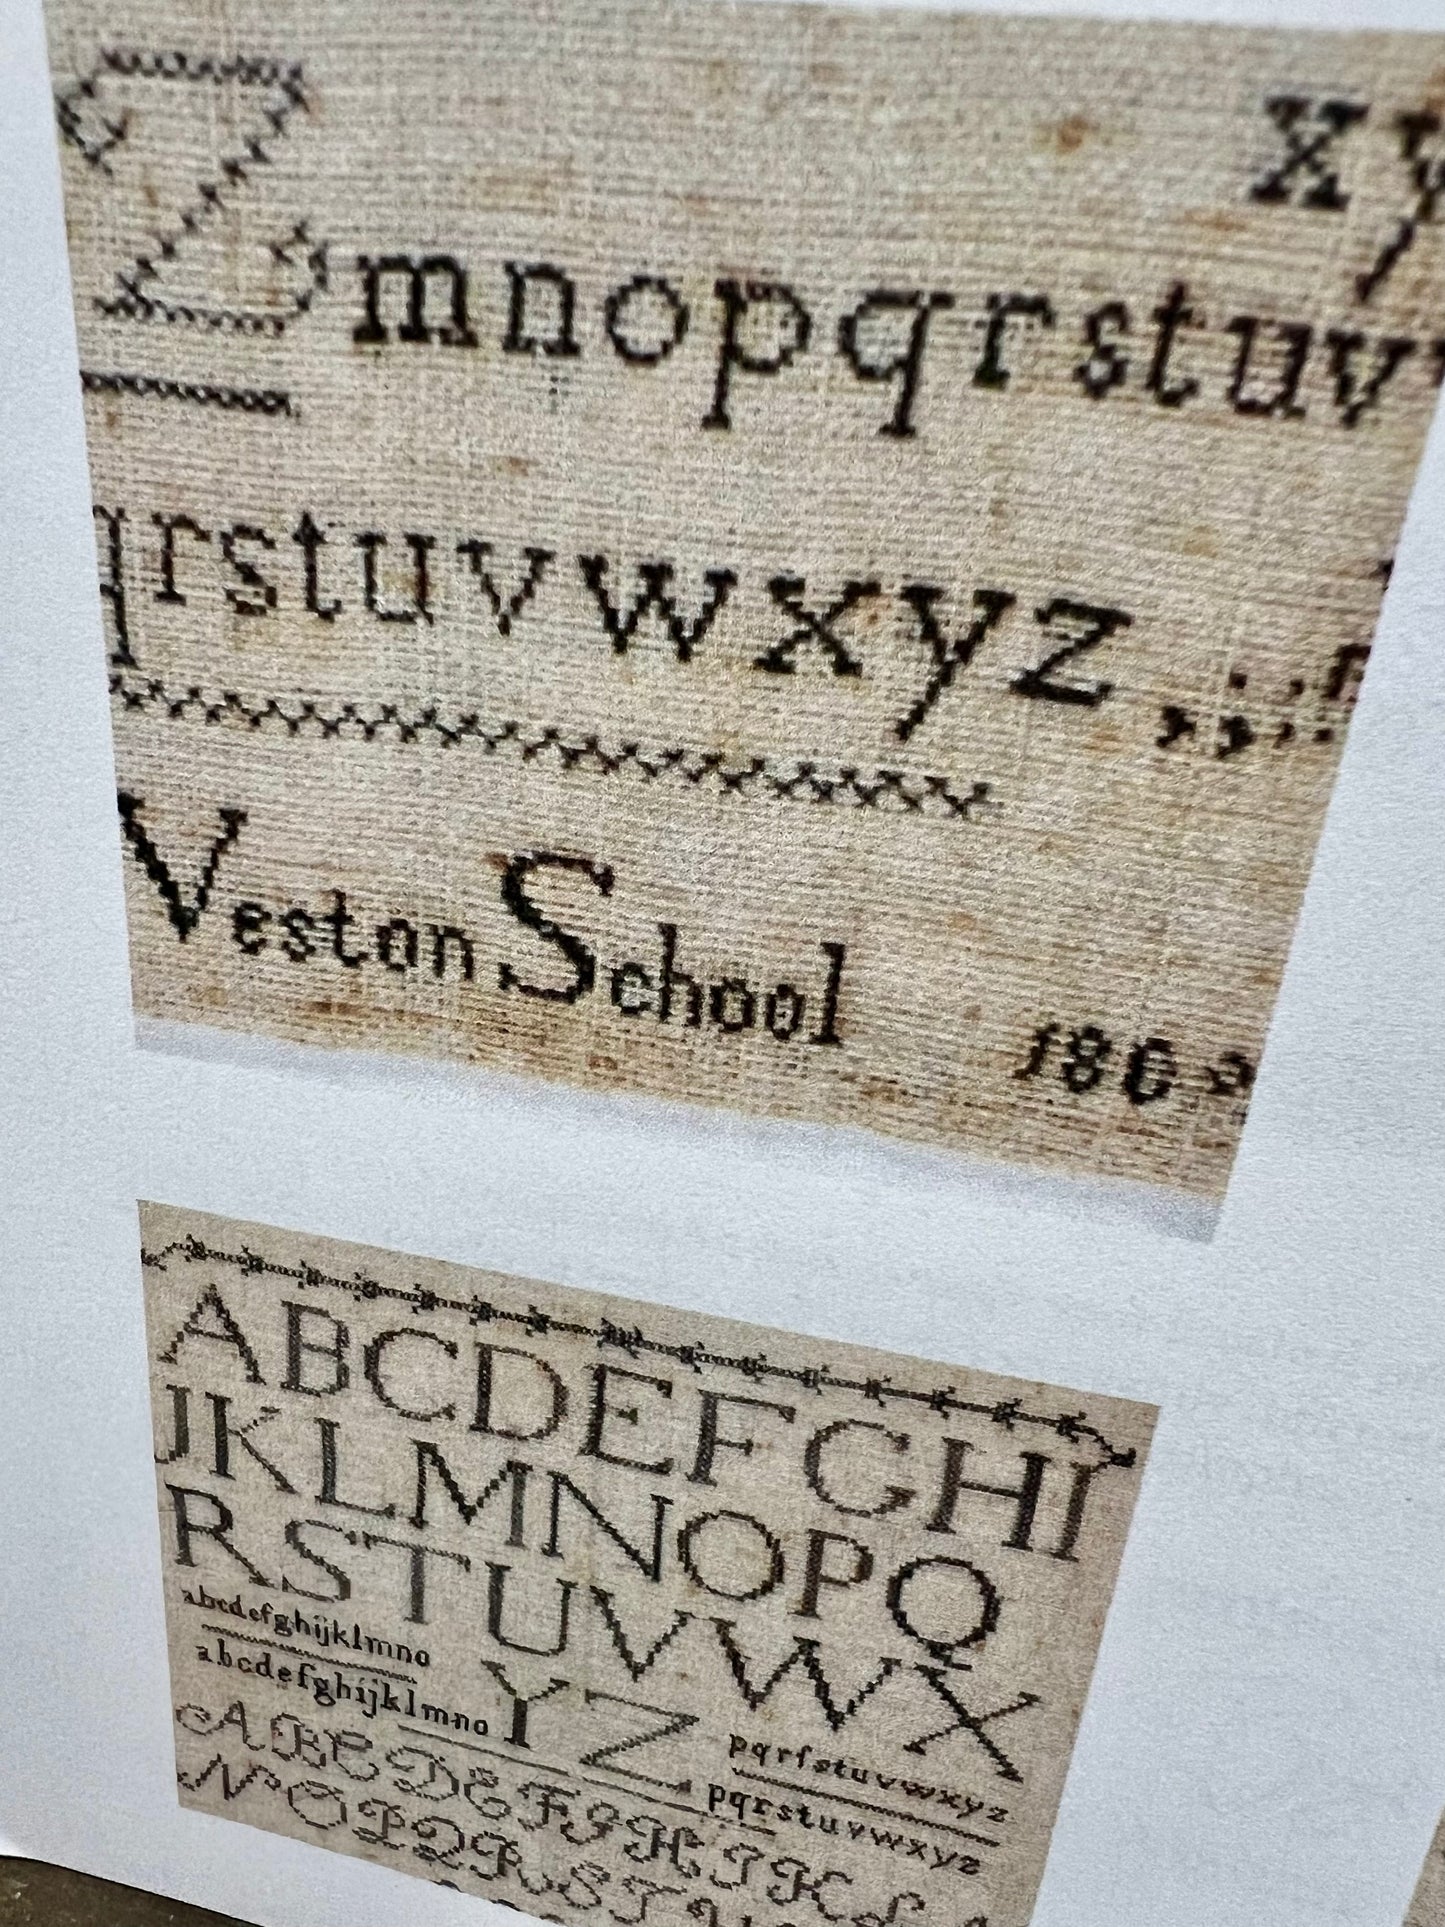 xy
Z mnopqrstuv
qrstuvwxyz
Weston School 186
ABCDEFGHI
JKLMNOPQ
RSTUVWX
abcdefghijklmno
abcdefghijklmno
YZ
pqrſstuvwxyz
pqrstuvwxyz
ABCDEFGHIJKL
NOPQRST